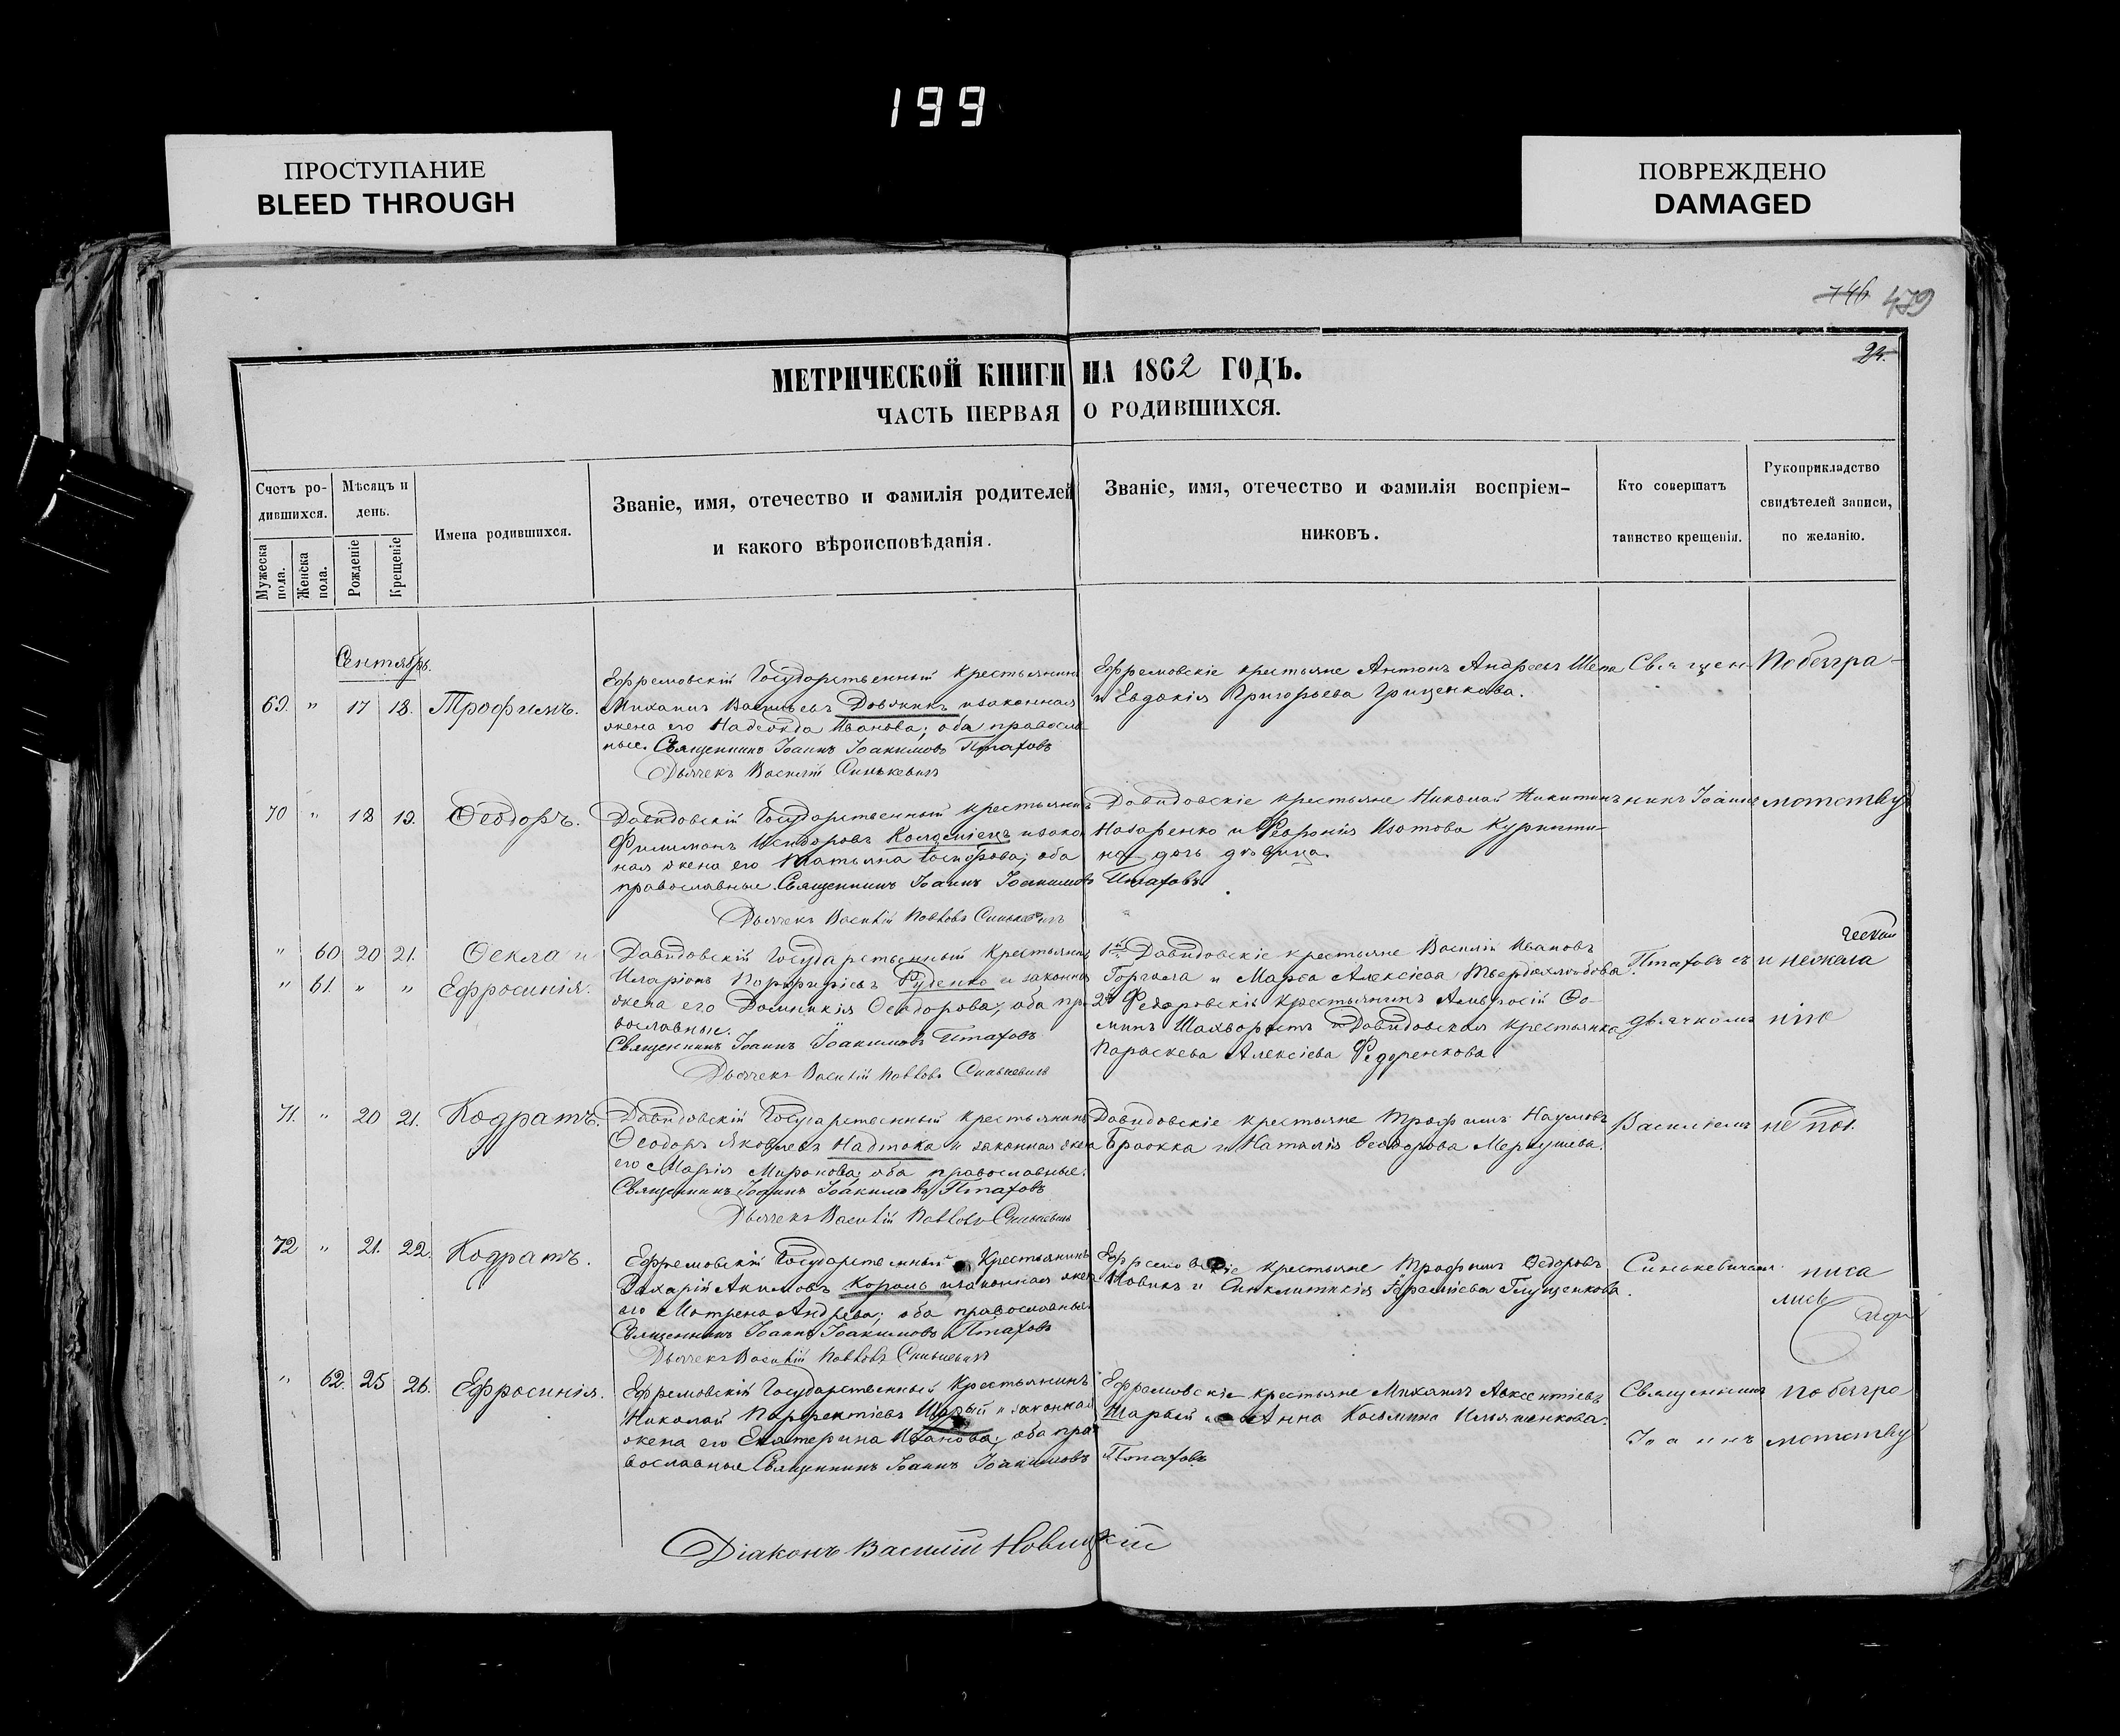 199
ПРОСТУПАНИЕ
BLEED THROUGH
ПОВРЕЖДЕНО
DAMAGED
746 479
24.
МЕТРИЧЕСКОЙ КНИГИ НА 1862 ГОДЪ.
ЧАСТЬ ПЕРВАЯ О РОДИВШИХСЯ.
Счетъ ро-
дившихся.
Мужеска пола.
Женска пола.
Мѣсяцъ и
день.
Рожденіе
Крещеніе
Имена родившихся.
Званіе, имя, отечество и фамилія родителей
и какого вѣроисповѣданія.
Званіе, имя, отечество и фамилія воспріем-
никовъ.
Кто совершатъ
таинство крещенія.
Рукоприкладство
свидѣтелей записи,
по желанію.
Сентябрь.
69. " 17 18. Трофимъ.
Ефремовскій Государственный Крестьянинъ
Михаилъ Васильевъ Довжикъ и законная
жена его Надежда Иванова; оба православ
ные. Священникъ Іоаннъ Іоакимовъ Птаховъ
Дьячекъ Василій Синькевичъ
Ефремовскіе крестьяне Антонъ Андреевъ
и Евдокія Григорьева Гриценкова.
70 " 18 19. Ѳеодоръ.
Давидовскій Государственный крестьянинъ
Филимонъ Исидоровъ и закон
ная жена его Татьяна; оба
православные. Священникъ Іоаннъ Іоакимовъ Птаховъ
Дьячекъ Василій Павловъ Синькевичъ
Давидовскіе крестьяне Николай Никитинъ
Назаренко и Февронія Изотова
дочь дѣвица.
" 60 20 21. Ѳекла и
" 61. " " Ефросинія.
Давидовскій Государственный Крестьянинъ
Иларіонъ Порфиріевъ Руденко и законная
жена его Домникія Ѳеодорова; оба пра
вославные.
Священникъ Іоаннъ Іоакимовъ Птаховъ
Дьячекъ Василій Павловъ Синькевичъ
1й Давидовскіе крестьяне Василій Ивановъ
Горгола и Марѳа Алексіева Твердохлѣбова
2й Федоровскій крестьянинъ Амвросій Ѳо-
минъ Шахворостъ и Давидовская крестьянка
Параскева Алексіева Федоренкова
71. " 20 21. Кодратъ.
Давидовскій Государственный крестьянинъ
Ѳеодоръ Яковлевъ Надтока и законная жена
его Марія Миронова; оба православные.
Священникъ Іоаннъ Іоакимовъ Птаховъ
Дьячекъ Василій Павловъ Синькевичъ
Давидовскіе крестьяне Трофимъ Наумовъ
и Наталія Ѳеодорова
72 " 21. 22. Кодратъ.
Ефремовскій Государственный Крестьянинъ
Захарій Акимовъ Король и законная жена
его Матрена Андреева; оба православные
Священникъ Іоаннъ Іоакимовъ Птаховъ
Дьячекъ Василій Павловъ Синькевичъ
Ефремовскіе крестьяне Трофимъ Ѳедоровъ
Новикъ и Синклитикія Глущенкова.
" 62. 25 26. Ефросинія.
Ефремовскій Государственный Крестьянинъ
Николай Шарый и законная
жена его Екатерина Иванова; оба пра
вославные Священникъ Іоаннъ Іоакимовъ Птаховъ
Ефремовскіе крестьяне Михаилъ Авксентіевъ
Шарый и Анна Козьмина Ильяшенкова.
Священ
никъ Іоаннъ
Птаховъ съ
дьячкомъ
Василіемъ
Синькевичемъ.
Священникъ
Іоаннъ
По безгра-
мотству
и нежела
нію
не под.
писа
лись
По безгра
мотству
Діаконъ Василій Новицкій